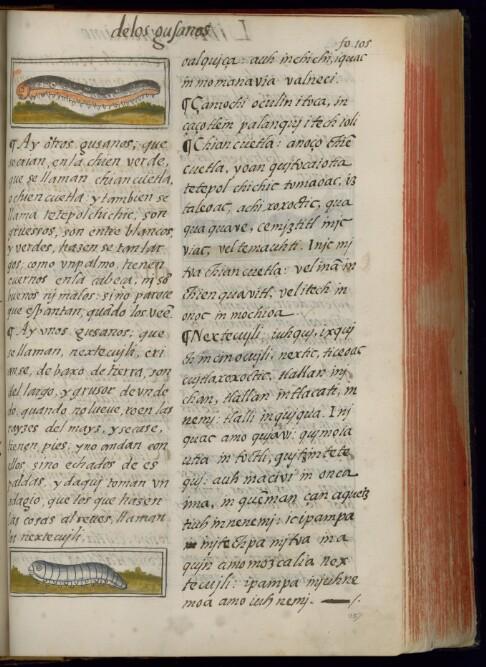 de los gusanos
fo. 105
¶ Ay otros gusanos, que
se crian, en la chien verde,
que se llaman chiancuetla,
o chiencuetla: y tambien se
llama tetepolchichic, son
gruessos, son entre blancos,
y verdes, hazen se tan lar
gos, como vn palmo, tienen
cuernos en la cabeça, ni son
buenos ni malos: sino parece
que espantan, quãdo los veẽ.
¶ Ay vnos gusanos, que
se llaman, nextecujli, cri
anse, de baxo de tierra, son
del largo, y grusor de vn de
do, quando no llueue, roen las
rayzes del mays, y secase,
tienen pies, y no andan con
ellos, sino echados de es
paldas, y daqui toman vn
adagio, que los que hazen
las cosas al reues, llaman
los nextecujli.
oalquiça: auh in chichi, iquac
in momanavia valneci.
¶ Çamochi oculin itoca, in
caçotlein palanquj itech ioli
¶ Chiancuetla: anoço chiẽ
cuetla, yoan qujtocaiotia
tetepolchichic tomaoac, iz
taleoac, achi xoxoctic, qua
quaquave, cemiztitl injc
viac, vel temauhti. Injc mj
tva chiancuetla: vel inã in
chienquavitl, vel itech in
onoc in mochioa.
¶ Nextecujli: iuhquj, ixquj
ch in cinocujli, nextic, ticeoac
cujtlaxoxoctic, tlallan in
chan, tlallan in tlacati, in
nemj: tlalli in quiqua. In j
quac amo qujavi: qujmola
in toctli, qujtzintete
quj: auh macivi in onca
ima, in quẽman çan aquetz
tiuh in nenemj: ic ipampa
intechpa mjtva in a
qujn amo mozcalia nex
tecujli: ipampa injuhne
moa amo iuh nemj.